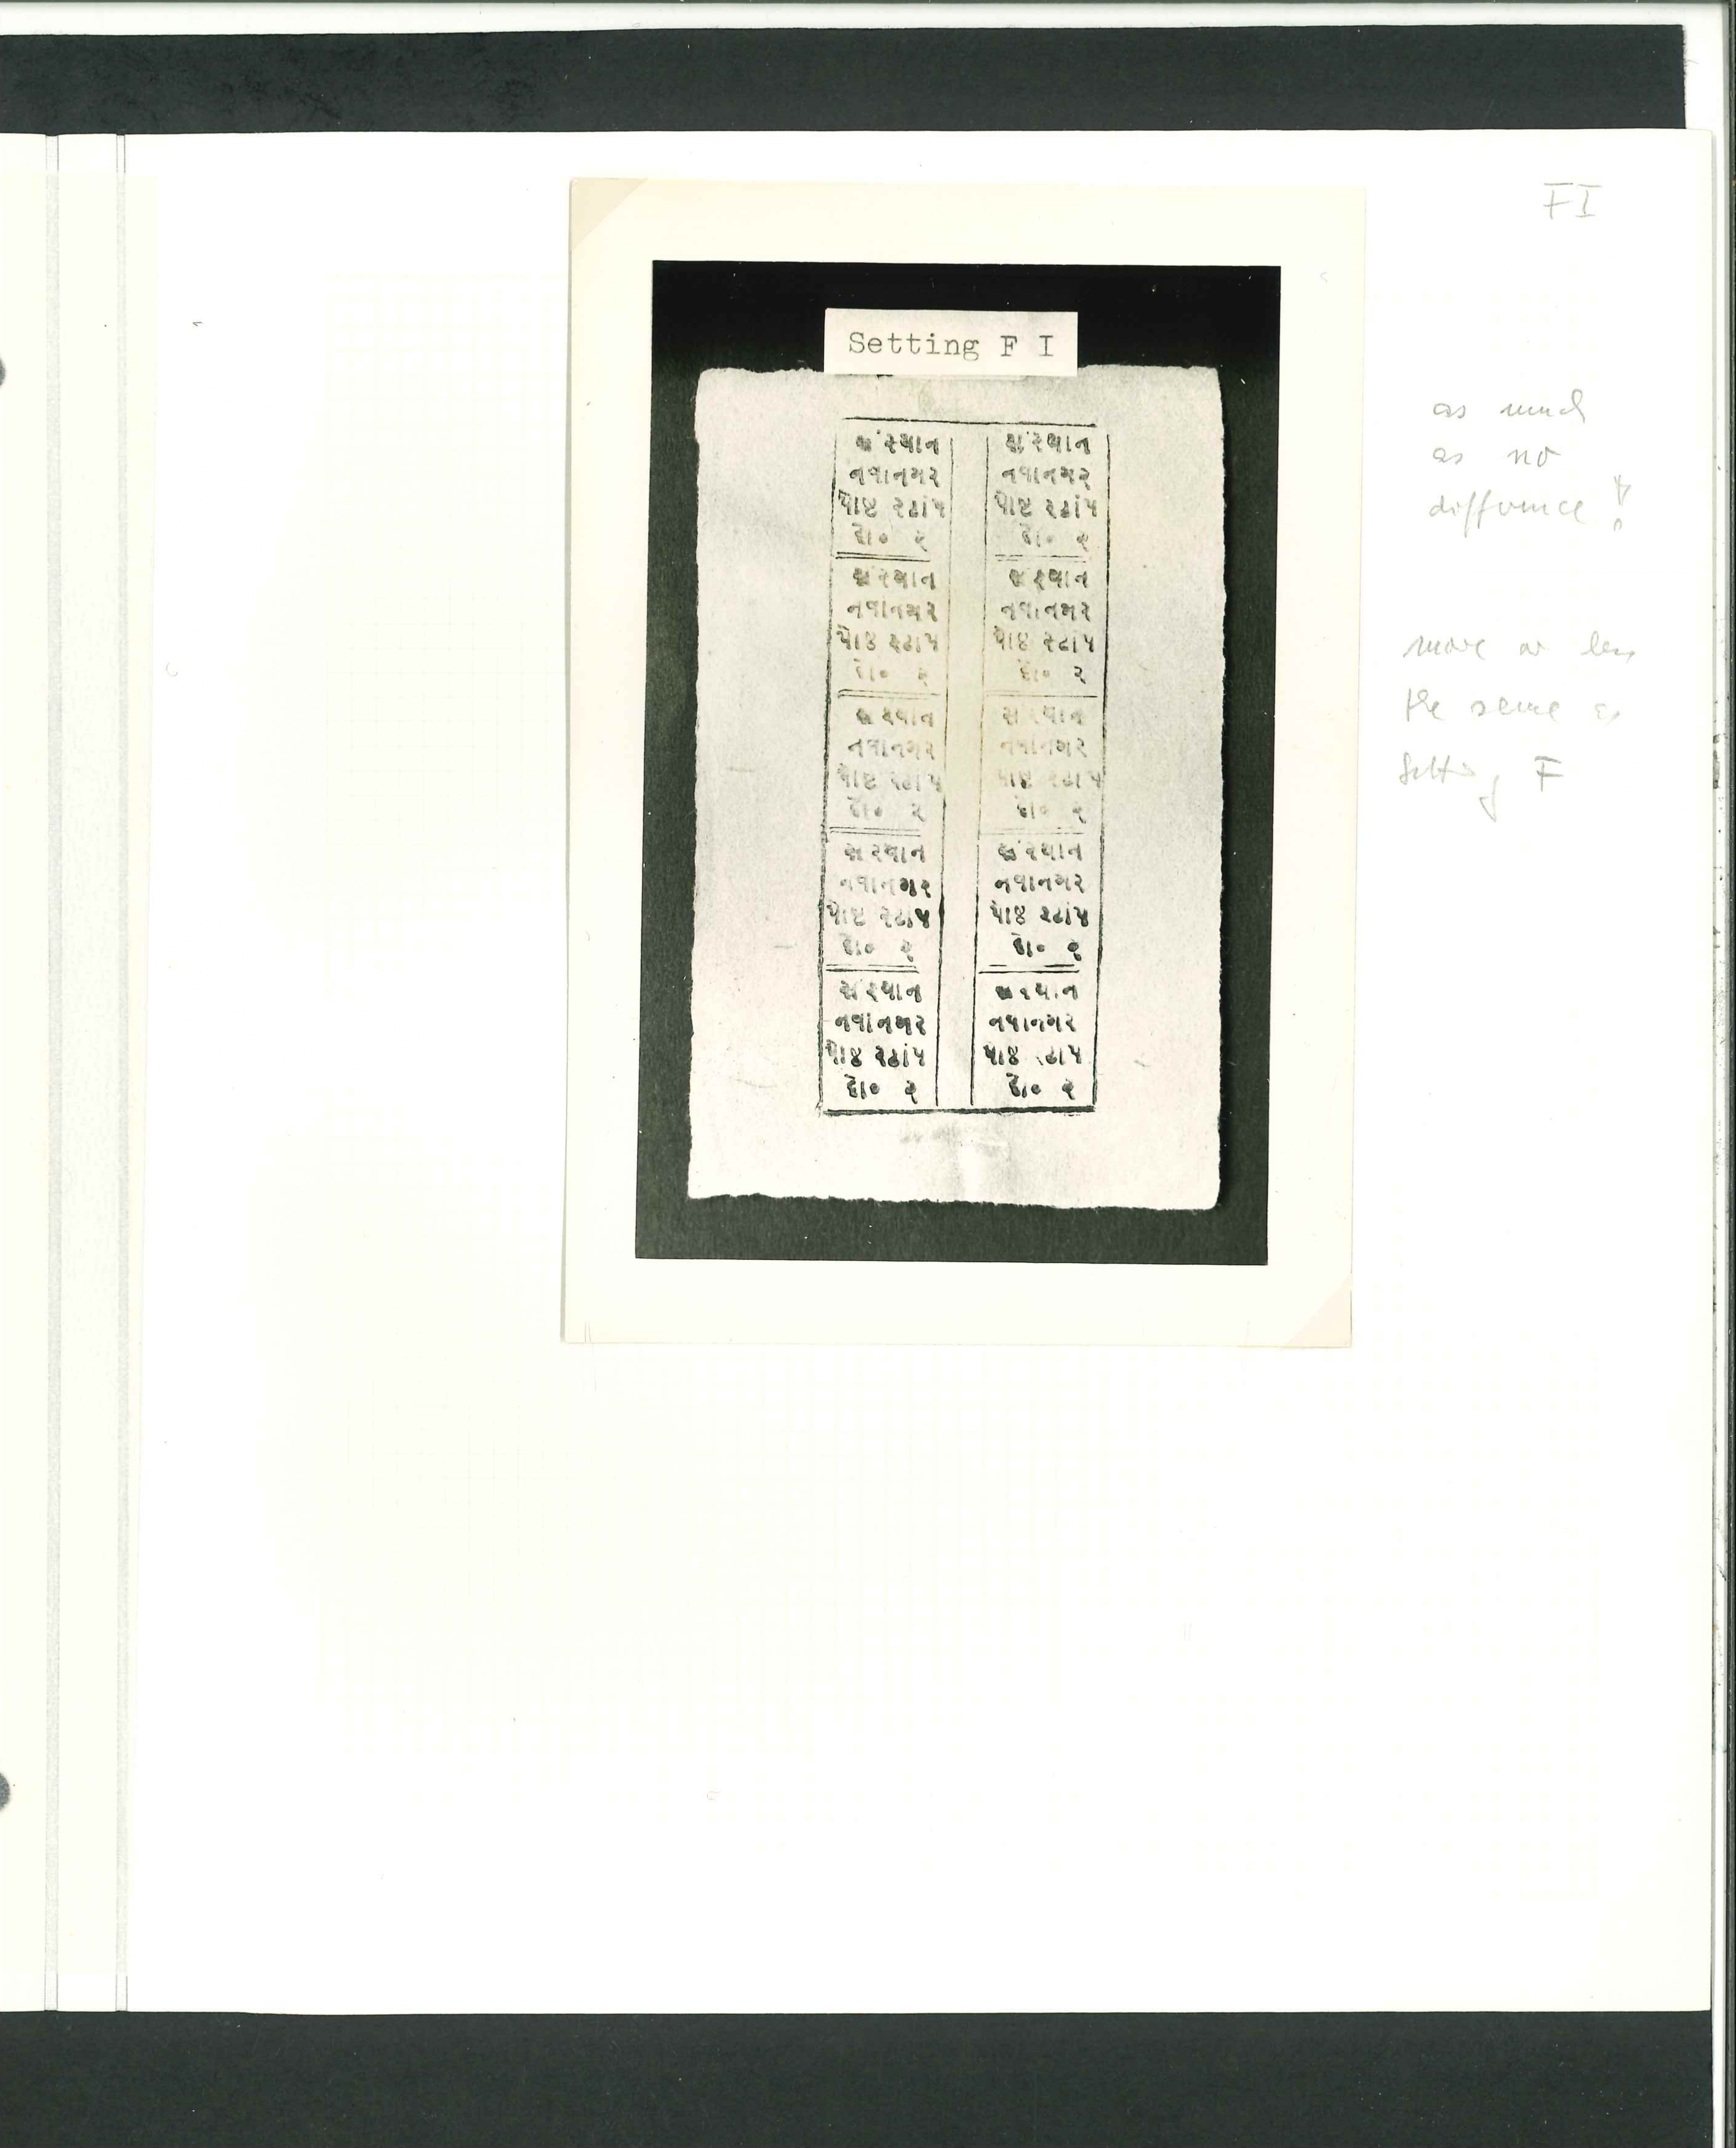 FI
Setting F I
સંસ્થાન
નવાનગર
પોષ્ટ સ્ટાંપ
દો૦ ૨
સંસ્થાન
નવાનગર
પોષ્ટ સ્ટાંપ
દો૦ ૨
સંસ્થાન
નવાનગર
પોષ્ટ સ્ટાંપ
દો૦ ૨
સંસ્થાન
નવાનગર
પોષ્ટ સ્ટાંપ
દો૦ ૨
સંસ્થાન
નવાનગર
પોષ્ટ સ્ટાંપ
દો૦ ૨
સંસ્થાન
નવાનગર
પોષ્ટ સ્ટાંપ
દો૦ ૨
સંસ્થાન
નવાનગર
પોષ્ટ સ્ટાંપ
દો૦ ૨
સંસ્થાન
નવાનગર
પોષ્ટ સ્ટાંપ
દો૦ ૨
સંસ્થાન
નવાનગર
પોષ્ટ સ્ટાંપ
દો૦ ૨
સંસ્થાન
નવાનગર
પોષ્ટ સ્ટાંપ
દો૦ ૨
as much
as no
difference !
more or less
the same as
Setting F